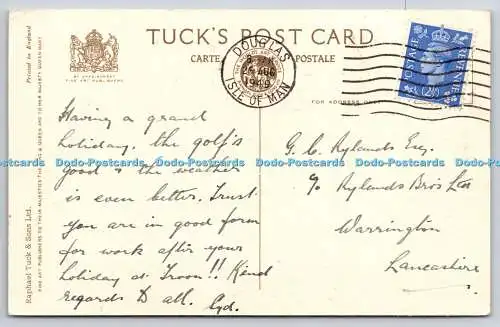 TUCK'S POST CARD
CARTE POSTALE
BY APPOINTMENT
FINE ART PUBLISHERS
Printed in England
Raphael Tuck & Sons Ltd.
FINE ART PUBLISHERS TO THEIR MAJESTIES THE KING & QUEEN AND TO HER MAJESTY QUEEN MARY
DOUGLAS
ISLE OF MAN
POSTAGE
REVENUE
2½D
FOR ADDRESS ONLY
Having a grand
holiday. the golf's
good & the weather
is even better. Trust
you are in good form
for work after your
holiday at Troon!! Kind
regards to all. Syd.
G. C. Rylands Esq.
c/o Rylands Bros Ltd
Warrington
Lancashire
Dodo-Postcards Dodo-Postcards Dodo-Postcards Dodo-Postcards Dodo-Postcards Dodo-Postcards